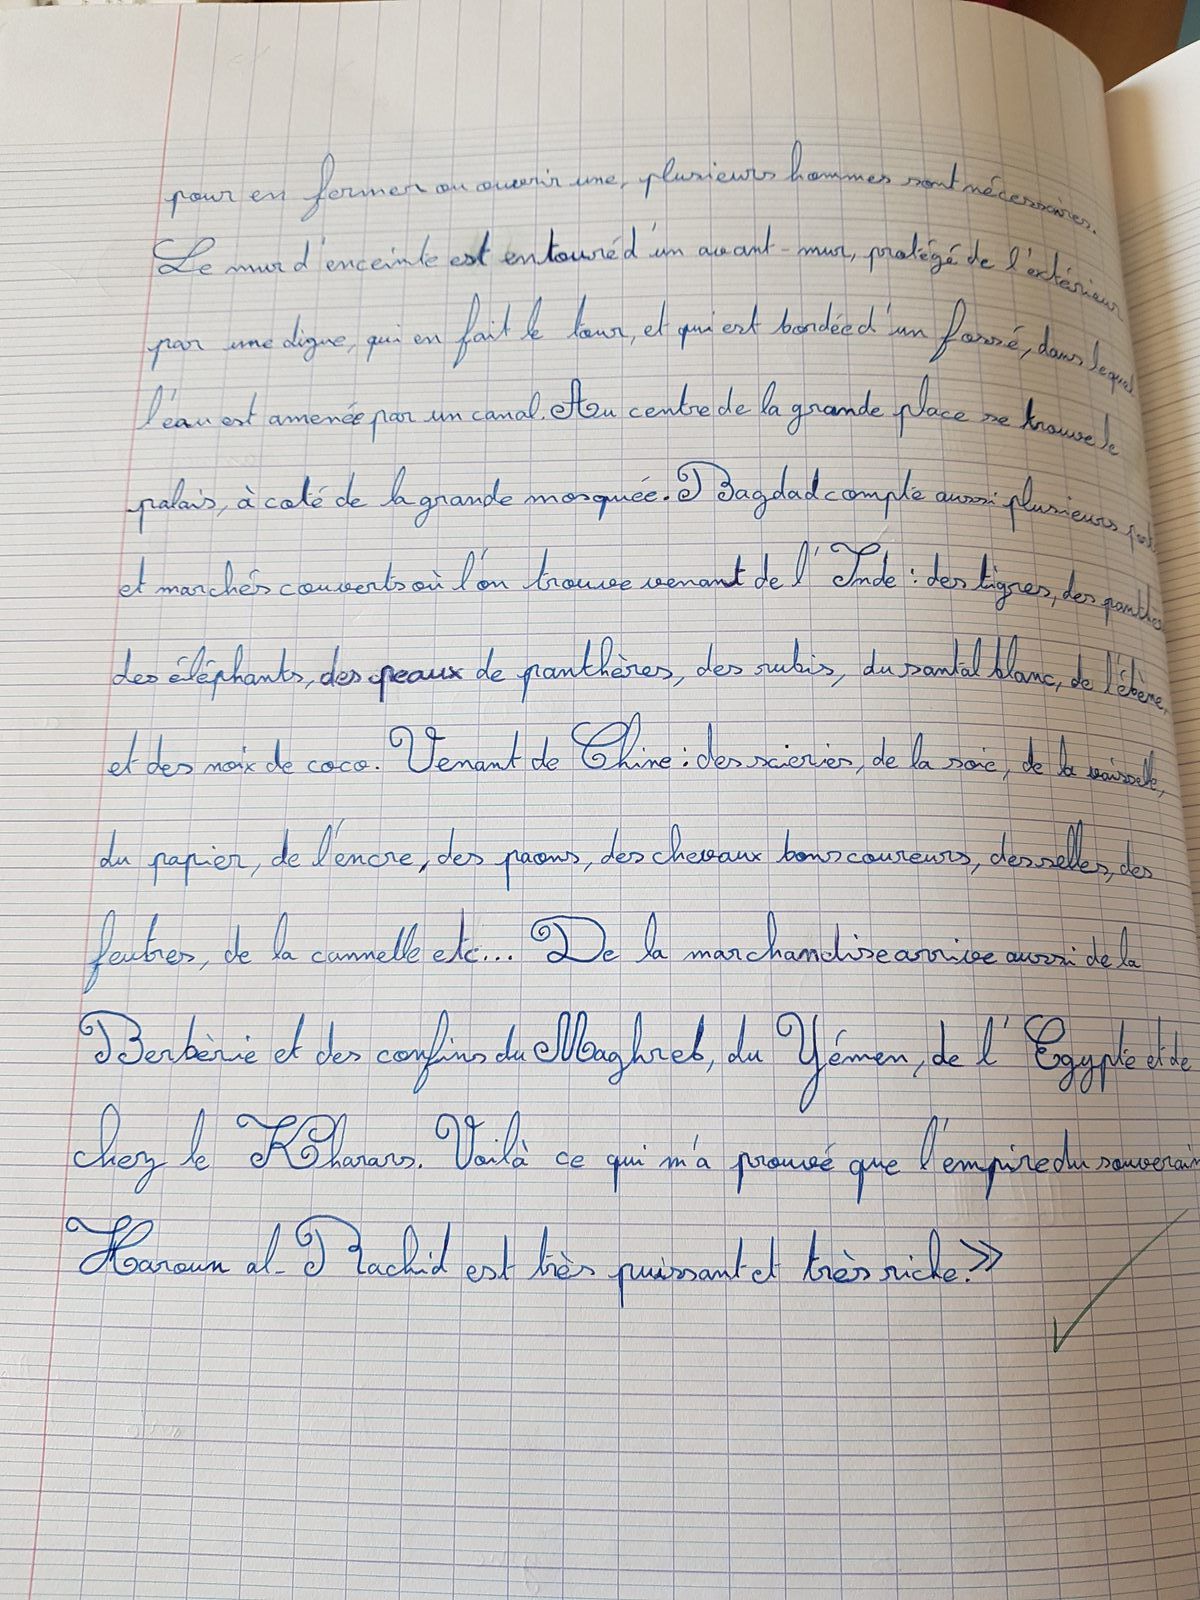 pour en fermer ou ouvrir une, plusieurs hommes sont nécessaires.
Le mur d'enceinte est entouré d'un avant-mur, protégé de l'extérieur
par une digue, qui en fait le tour, et qui est bordée d'un fossé, dans lequel
l'eau est amenée par un canal. Au centre de la grande place se trouve le
palais, à coté de la grande mosquée. Bagdad compte aussi plusieurs
et marchés couverts où l'on trouve venant de l'Inde : des tigres, des panthères
des éléphants, des peaux de panthères, des rubis, du santal blanc, de l'ébène,
et des noix de coco. Venant de Chine : des scieries, de la soie, de la vaisselle,
du papier, de l'encre, des paons, des chevaux bons coureurs, des selles, des
feutres, de la cannelle etc... De la marchandise arrive aussi de la
Berbèrie et des confins du Maghreb, du Yémen, de l'Egypte et de
chez le Kharars. Voilà ce qui m'a prouvé que l'empire du souverain
Haroun al-Rachid est très puissant et très riche.»